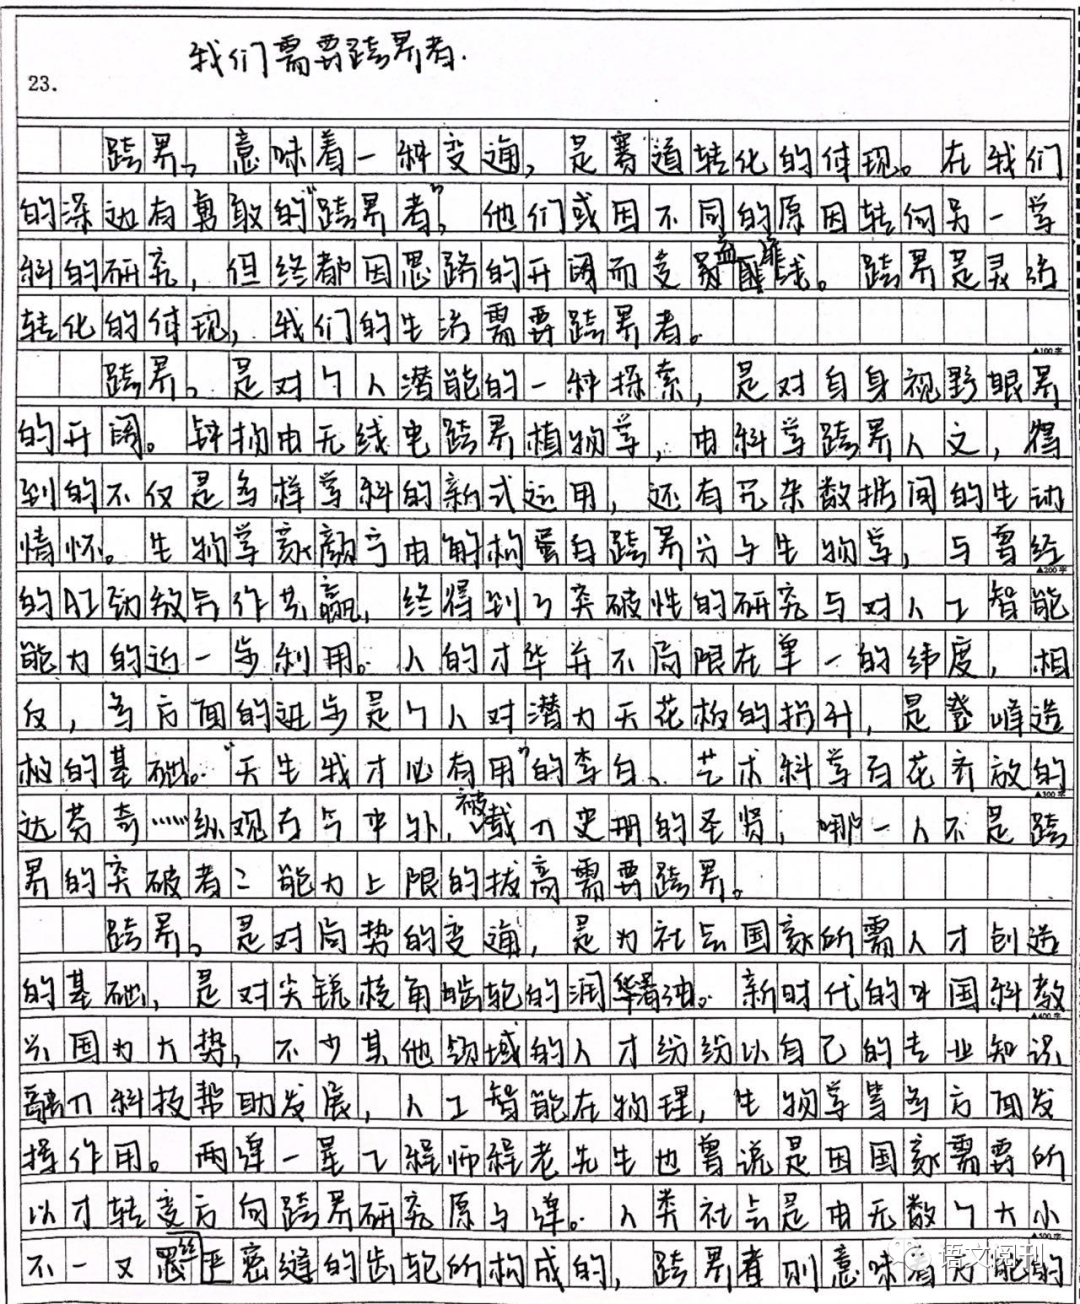 我们需要跨界者.
23.
跨界，意味着一种变通，是赛道转化的体现。在我们
的深边有勇敢的“跨界者”，他们或因不同的原因转向另一学
科的研究，但终都因思路的开阔而变。跨界是灵活
转化的体现，我们的生活需要跨界者。
▲100字
跨界。是对个人潜能的一种探索，是对自身视野眼界
的开阔。钟扬由无线电跨界植物学，由科学跨界人文，得
到的不仅是多样学科的新式运用，还有冗杂数据间的生动
情怀。生物学家颜宁由解构蛋白跨界分子生物学，与曾经
▲200字
的AI劲敌合作共赢，终得到了突破性的研究与对人工智能
能力的近一步利用。人的才华并不局限在单一的纬度，相
反，多方面的进步是个人对潜力天花板的提升，是登峰造
极的基础。“天生我才必有用”的李白、艺术科学百花齐放的
▲300字
达芬奇……纵观古今中外，被载入史册的圣贤，哪一人不是跨
界的突破者？能力上限的拔高需要跨界。
跨界。是对局势的变通，是为社会国家所需人才创造
的基础，是对尖锐棱角齿轮的润滑油。新时代的中国科教
▲400字
兴国为大势，不少其他领域的人才纷纷以自己的专业知识
融入科技帮助发展，人工智能在物理，生物学等多方面发
挥作用。两弹一星工程师程老先生也曾说是因国家需要所
以才转变方向跨界研究原子弹。人类社会是由无数个大小
▲500字
不一又丝严密缝的齿轮所构成的，跨界者则意味着万能的
语文阅刊